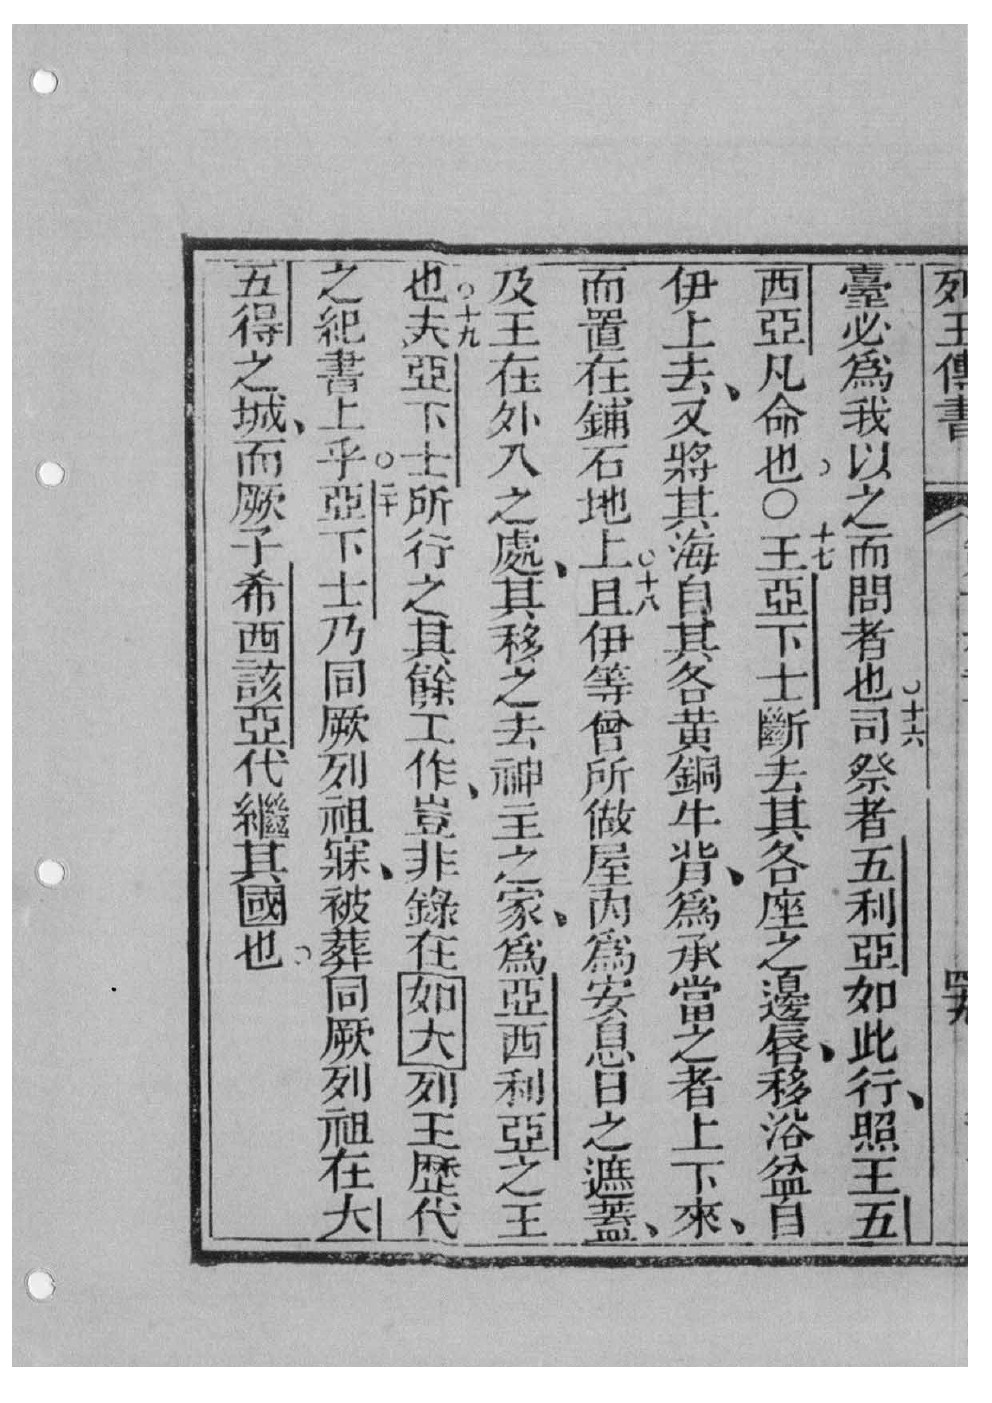 列王傳書
臺必爲我以之而問者也○十六司祭者五利亞如此行、照王五
西亞凡命也。○十七王亞下士斷去其各座之邊唇、移浴盆自
伊上去、又將其海自其各黃銅牛背、爲承當之者上下來、
而置在鋪石地上○十八且伊等曾所做屋內爲安息日之遮蓋、
及王在外入之處、其移之去神主之家、爲亞西利亞之王
也○十九夫亞下士所行之其餘工作、豈非錄在如大列王歷代
之紀書上乎○二十亞下士乃同厥列祖寐、被葬同厥列祖在大
五得之城、而厥子希西該亞代繼其國也。